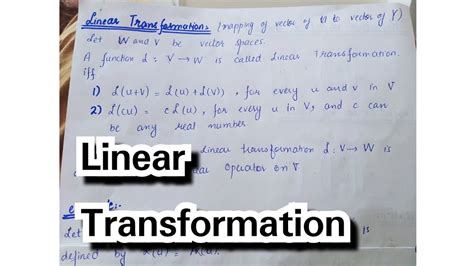 Linear Transformation: (mapping of vector of W to vector of V)
Let W and V be vector spaces.
A function L: V→W is called Linear Transformation.
iff
1) L(u+v) = L(u) + L(v)), for every u and v in V
2) L(cu) = cL(u), for every u in V, and c can
be any real number
linear transformation L: V→W is
operator on V.
Linear
Transformation
Let
is
defined by L(u) =